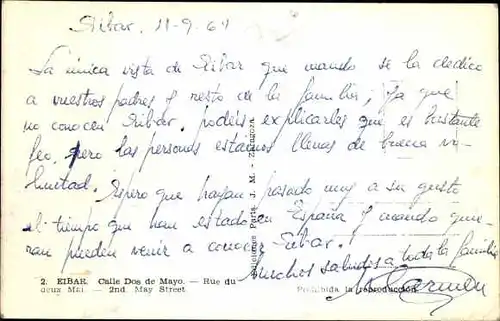 Eibar, 11-9-64
La única vista de Eibar que mando se la dedico
a vuestros padres y resto de la familia; ya que
no conocen Eibar. podéis explicarles que es bastante
feo, pero las personas estamos llenas de buena vo-
luntad. Espero que hayan pasado muy a su gusto
el tiempo que han estado en España y cuando quie-
ran pueden venir a conocer Eibar!
Muchos saludos a toda la familia
M. Carmen
2. EIBAR. Calle Dos de Mayo. — Rue du
deux Mai. — 2nd. May Street
Prohibida la reproducción
Ediciones París J. M. - Zaragoza